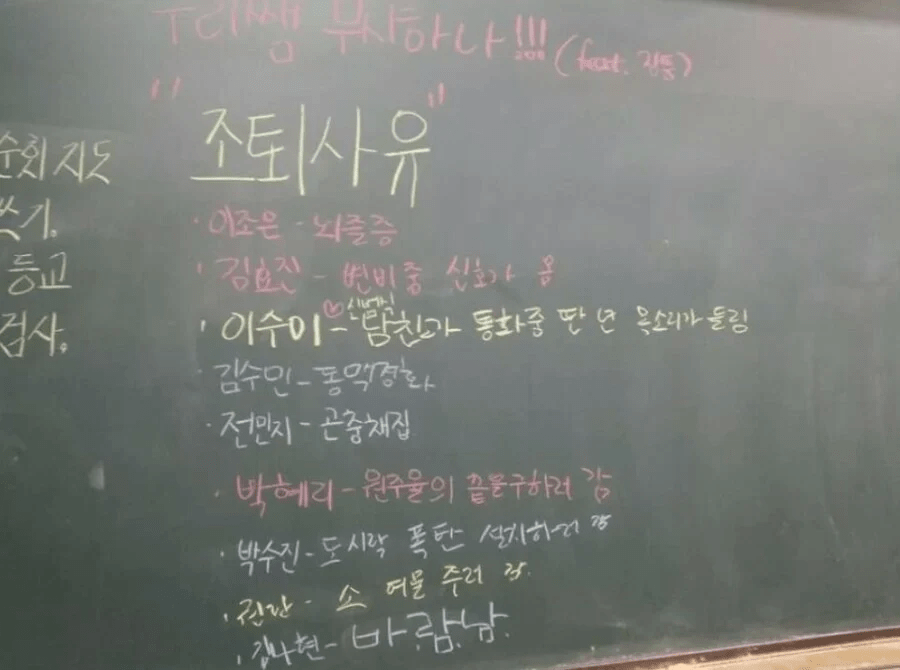 우리쌤 무사하나!!! (feat. 집통)
"조퇴사유"
순회지도
쓰기.
등교
검사.
· 이조은 - 뇌졸증
· 김효진 - 변비중 신호가 옴
· 이수이 - ♡신예신 남친과 통화중 딴 년 목소리가 들림
김수민 - 동맥경화
· 전민지 - 곤충채집
· 박혜리 - 원주율의 끝을구하러 감
· 박수진 - 도시락 폭탄 설치하러 감
· 진단 - 소 여물 주러 감.
· 김나현 - 바.람.남.